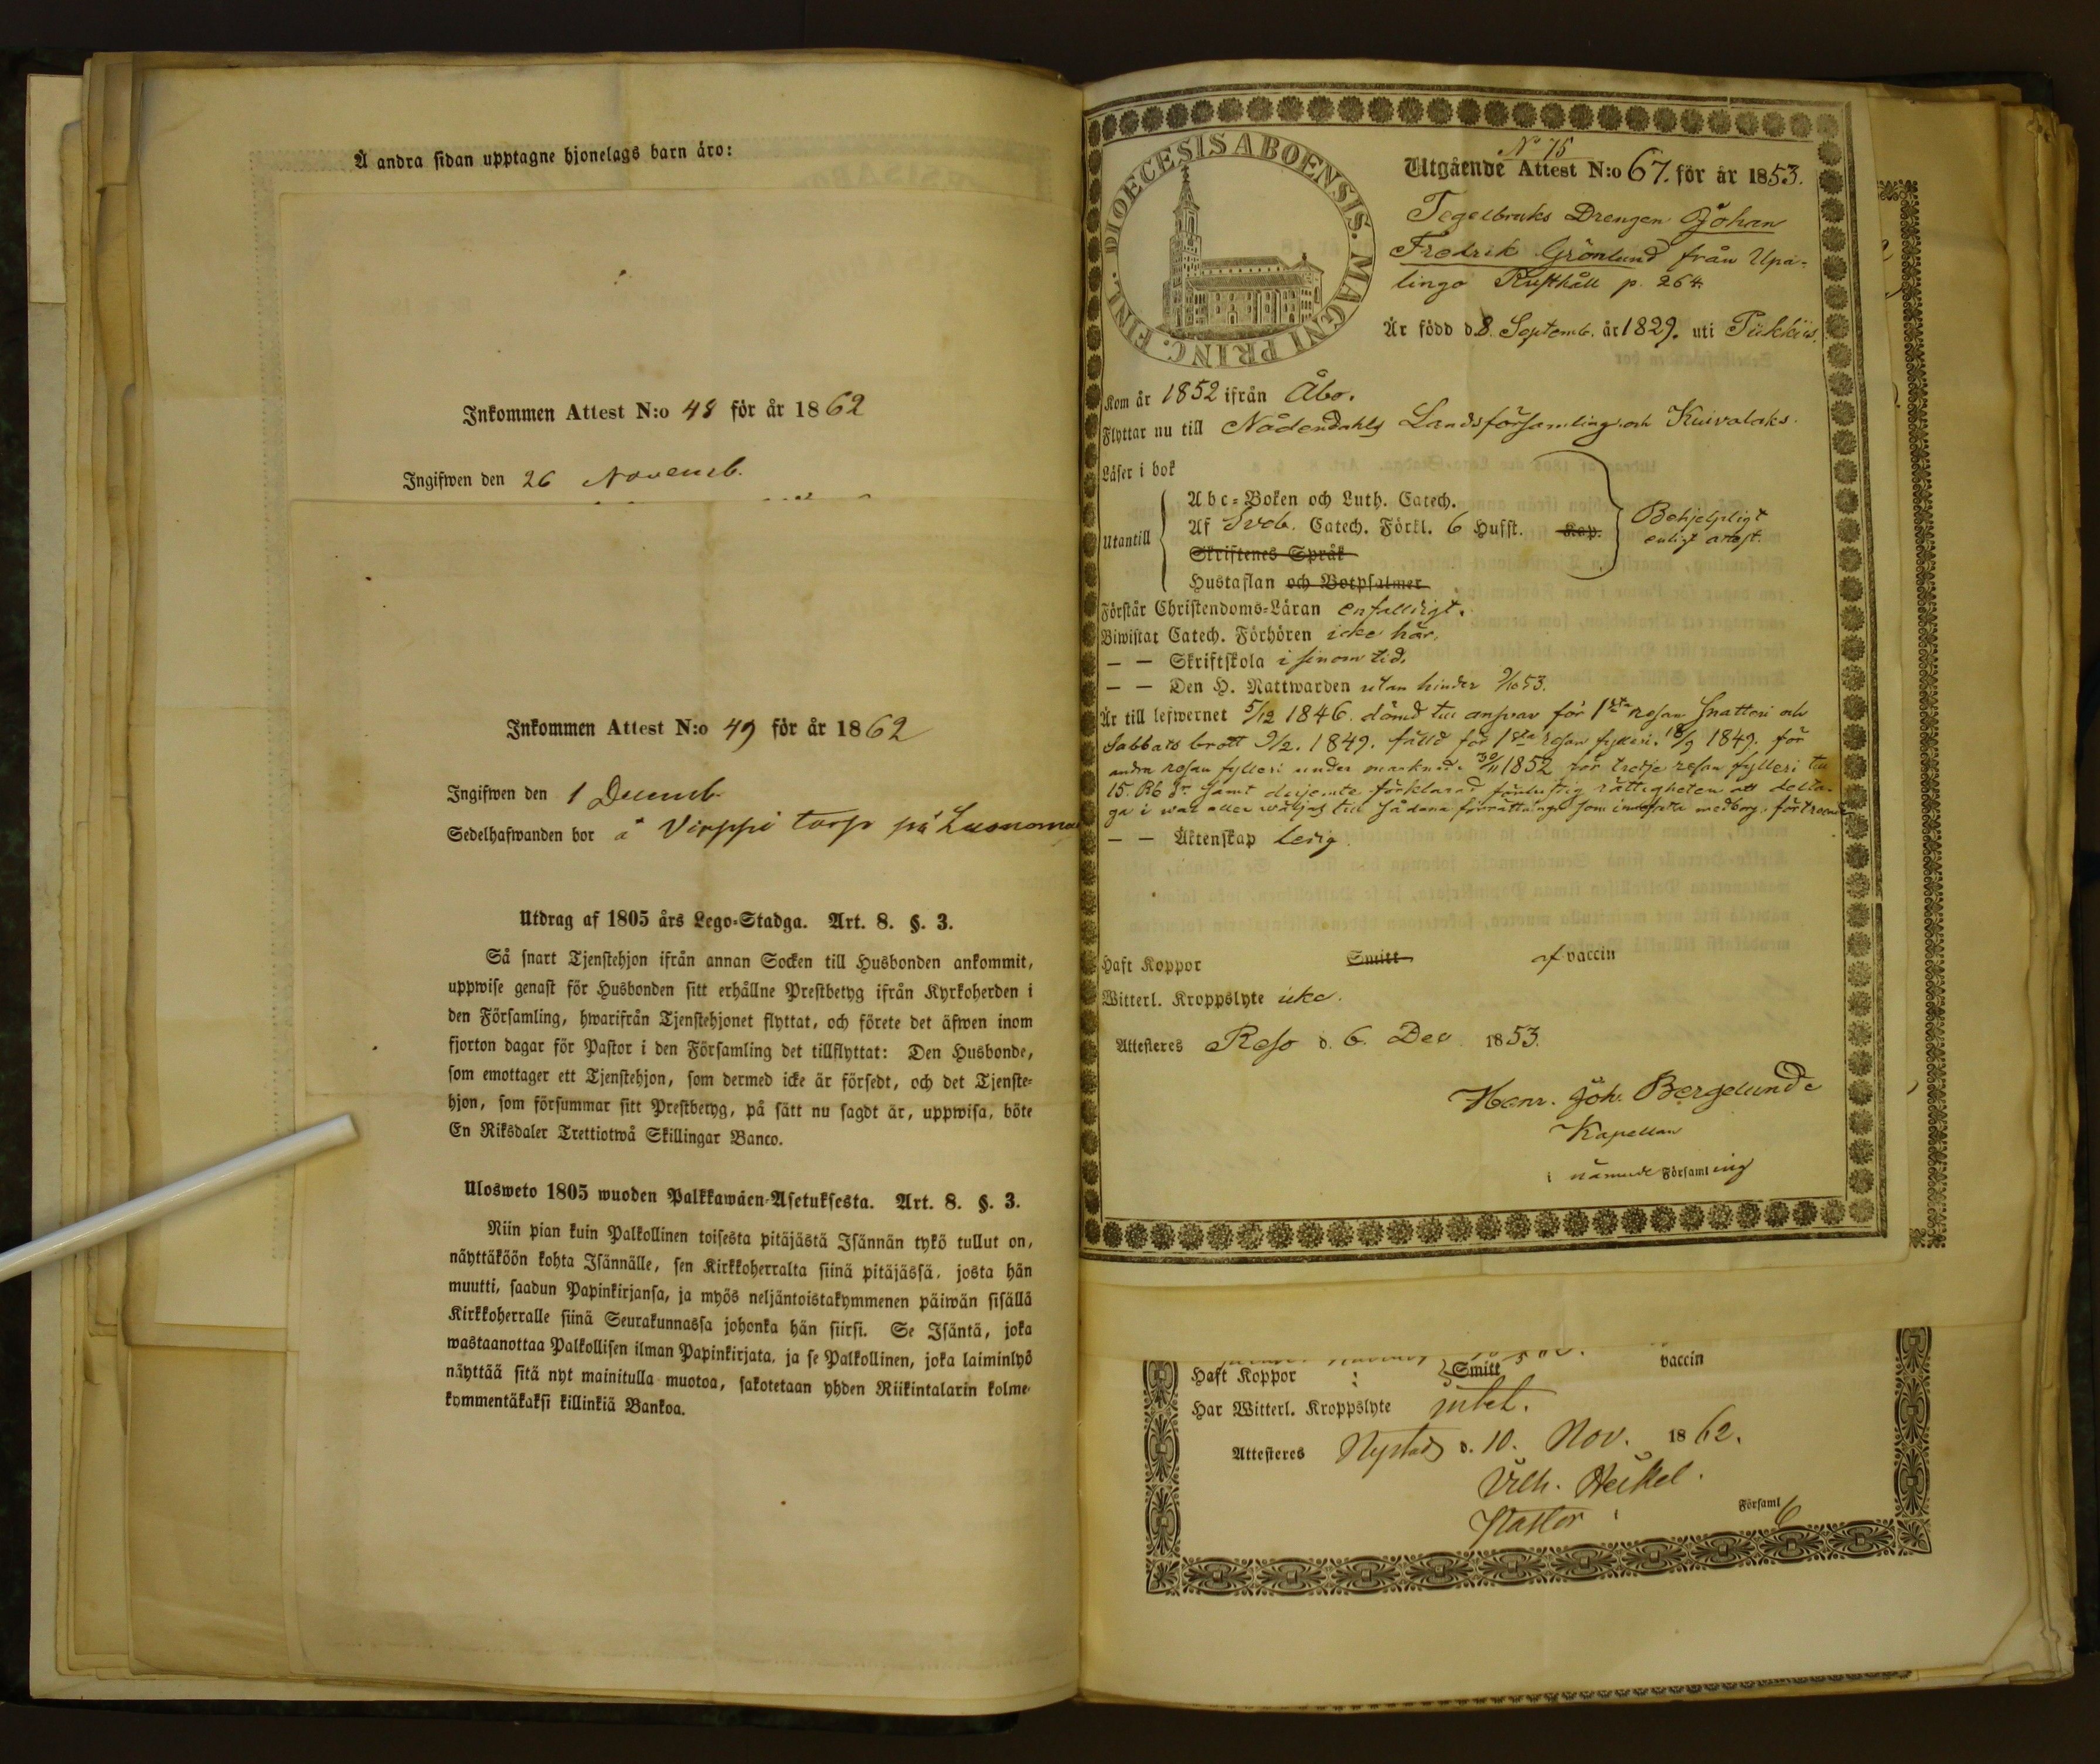 Å andra sidan upptagne hjonelags barn äro:
Inkommen Attest N:o 48 för år 1862
Ingifwen den 26 Novemb.
Inkommen Attest N:o 49 för år 1862
Ingifwen den 1 Decemb.
Sedelhafwanden bor å Virppi torp på
Utdrag af 1805 års Lego-Stadga. Art. 8. §. 3.
Så snart Tjenstehjon ifrån annan Socken till Husbonden ankommit,
uppwise genast för Husbonden sitt erhållne Prestbetyg ifrån Kyrkoherden i
den Församling, hwarifrån Tjenstehjonet flyttat, och förete det äfwen inom
fjorton dagar för Pastor i den Församling det tillflyttat: Den Husbonde,
som emottager ett Tjenstehjon, som dermed icke är försedt, och det Tjenste-
hjon, som försummar sitt Prestbetyg, på sätt nu sagdt är, uppwisa, böte
En Riksdaler Trettiotwå Skillingar Banco.
Ulosweto 1805 wuoden Palkkawäen-Asetuksesta. Art. 8. §. 3.
Niin pian kuin Palkollinen toisesta pitäjästä Isännän tykö tullut on,
näyttäköön kohta Isännälle, sen Kirkkoherralta siinä pitäjässä, josta hän
muutti, saadun Papinkirjansa, ja myös neljäntoistakymmenen päiwän sisällä
Kirkkoherralle siinä Seurakunnassa johonka hän siirsi. Se Isäntä, joka
wastaanottaa Palkollisen ilman Papinkirjata, ja se Palkollinen, joka laiminlyö
näyttää sitä nyt mainitulla muotoa, sakotetaan yhden Riikintalarin kolme-
kymmentäkaksi killinkiä Bankoa.
DIOECESIS ABOENSIS. MAGNI PRINC. FINL.
N° 75
Utgående Attest N:o 67. för år 1853.
Tegelbruks Drengen Johan
Fredrik Grönlund från Upa-
lingo Rusthåll p. 264.
Är född d. 8. Septemb. år 1829. uti Pikkis.
Kom år 1852 ifrån Åbo.
Flyttar nu till Nådendahls Landsförsamling och Kuivalaks.
Läser i bok
Utantill
Abc-Boken och Luth. Catech.
Af Sveb. Catech. Förkl. 6 Hufst. Kap.
Skriftenes Språk
Hustaflan och Botpsalmer
Behjelpligt
enligt attest.
Förstår Christendoms-Läran enfalldigt.
Biwistat Catech. Förhören icke här.
— — Skriftskola i sinom tid.
— — Den H. Nattwarden utan hinder 9/10 53.
Är till lefwernet 5/12 1846. dömd till answar för 1sta resan snatteri och
Sabbats brott 9/2. 1849. fälld för 1sta resan fylleri. 18/9 1849. för
andra resan fylleri under marknad. 30/11 1852 för tredje resan fylleri till
15. Rb Sr. samt derjemte förklarad förlustig rättigheten att delta-
ga i wal eller wäljas till sådana förrättningar som medborg. förtroende
— — Äktenskap ledig.
Haft Koppor Smitt af vaccin
Witterl. Kroppslyte icke.
Attesteres Reso d. 6. Dec. 1853.
Henr. Joh. Bergelunde
Kapellan
i nämnde Församling
Haft Koppor Smitt vaccin
Har Witterl. Kroppslyte intet.
Attesteres Nystad d. 10. Nov. 1862.
Vilh. Heikel.
Pastor i Församl